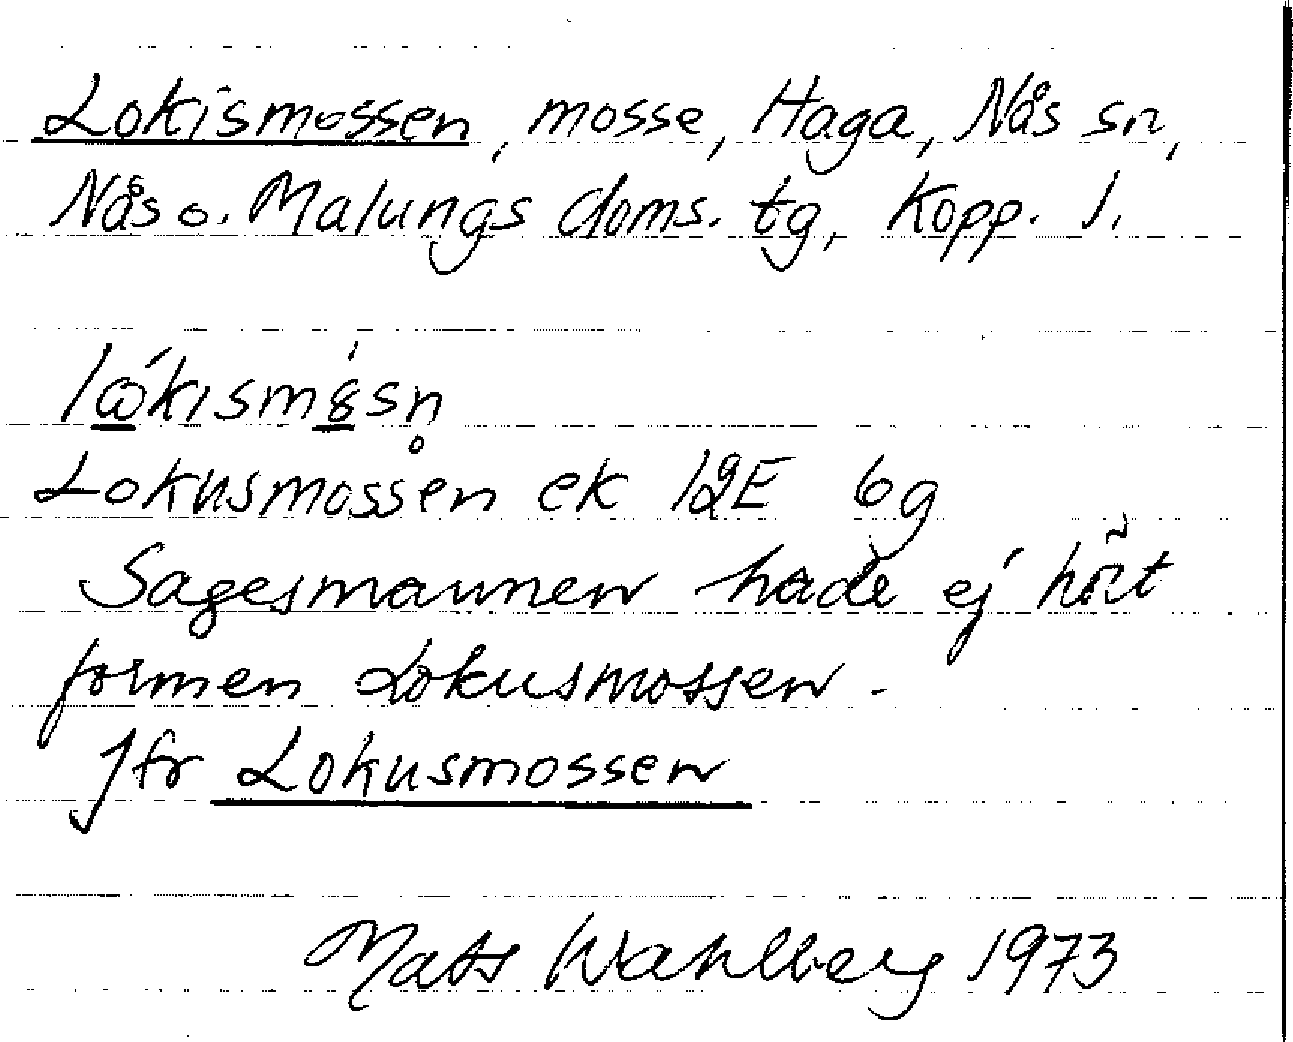 Lokismossen, mosse, Haga, Nås sn,
Nås o. Malungs doms. tg, Kopp. l.
lώkısmȣ́sn̥
Lokusmossen ek 12E 6g
Sagesmannen hade ej hört
formen Lokusmossen.
Jfr Lokusmossen
Mats Wahlberg 1973